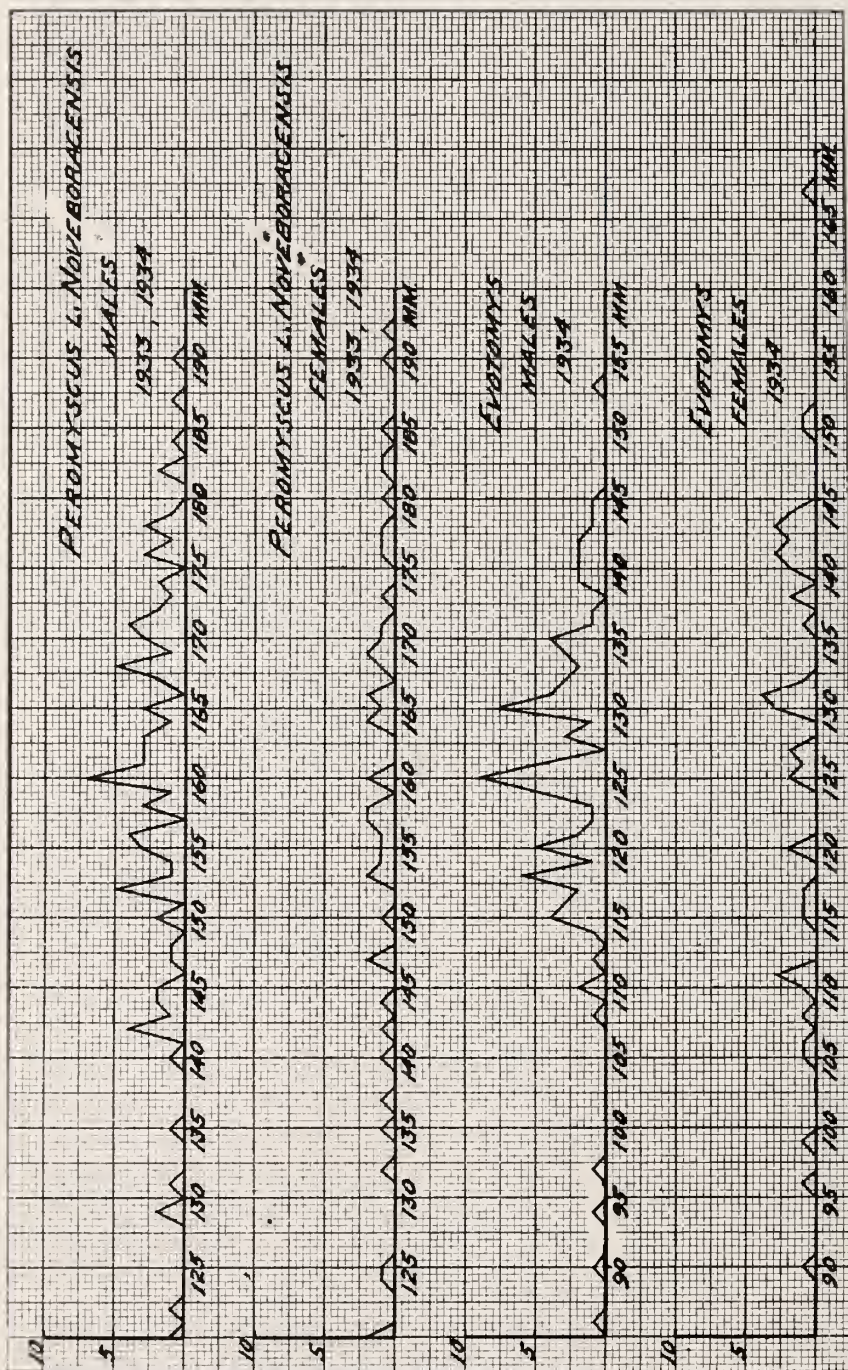 PEROMYSCUS L. NOVEBORACENSIS
MALES
1933, 1934
10
5
125 130 135 140 145 150 155 160 165 170 175 180 185 190 MM.
PEROMYSCUS L. NOVEBORACENSIS
FEMALES
1933, 1934
10
5
125 130 135 140 145 150 155 160 165 170 175 180 185 190 MM.
EVOTOMYS
MALES
1934
10
5
90 95 100 105 110 115 120 125 130 135 140 145 150 155 MM
EVOTOMYS
FEMALES
1934
10
5
90 95 100 105 110 115 120 125 130 135 140 145 150 155 160 165 MM